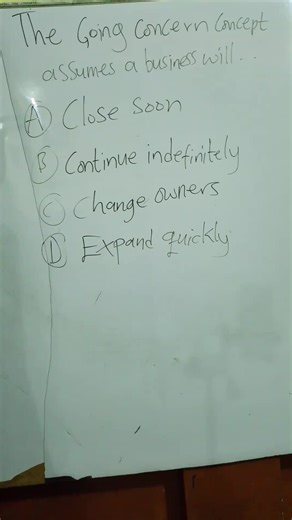 The Going Concern Concept
assumes a business will..
A Close soon
B Continue indefinitely
C Change owners
D Expand quickly